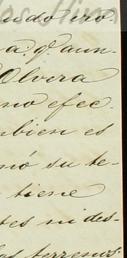 ndo iro
a qe. aun-
Olvera
no efec-
mbien es
nó su te-
tiene
tes ni des-
los terrenos